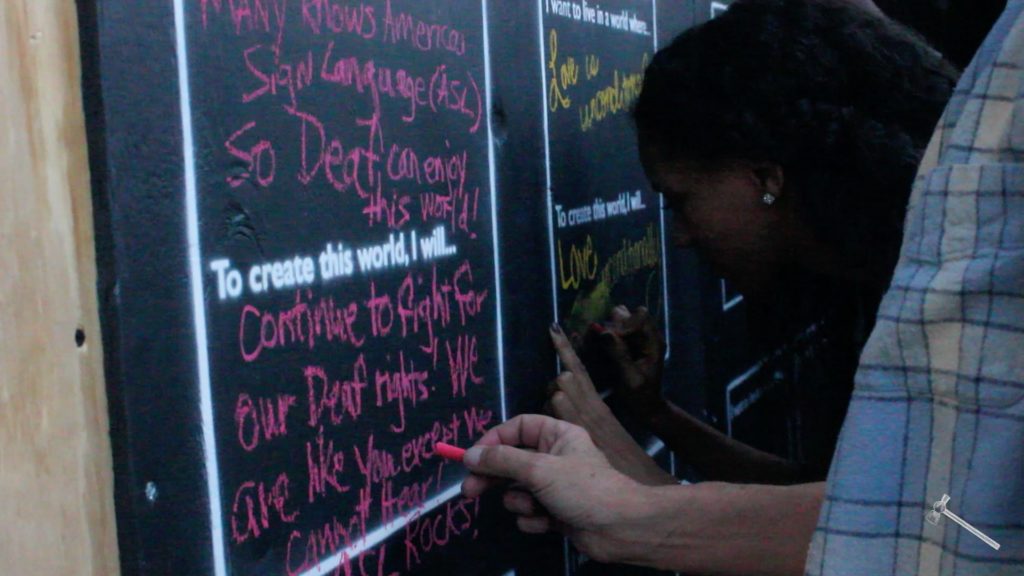 MANY KNOWS America
Sign Language (ASL)
So Deaf can enjoy
this world!
To create this world, I will...
Continue to fight for
our Deaf rights! We
are like you except we
cannot Hear!
Rocks!
I want to live in a world where...
Love is
To create this world, I will...
Love